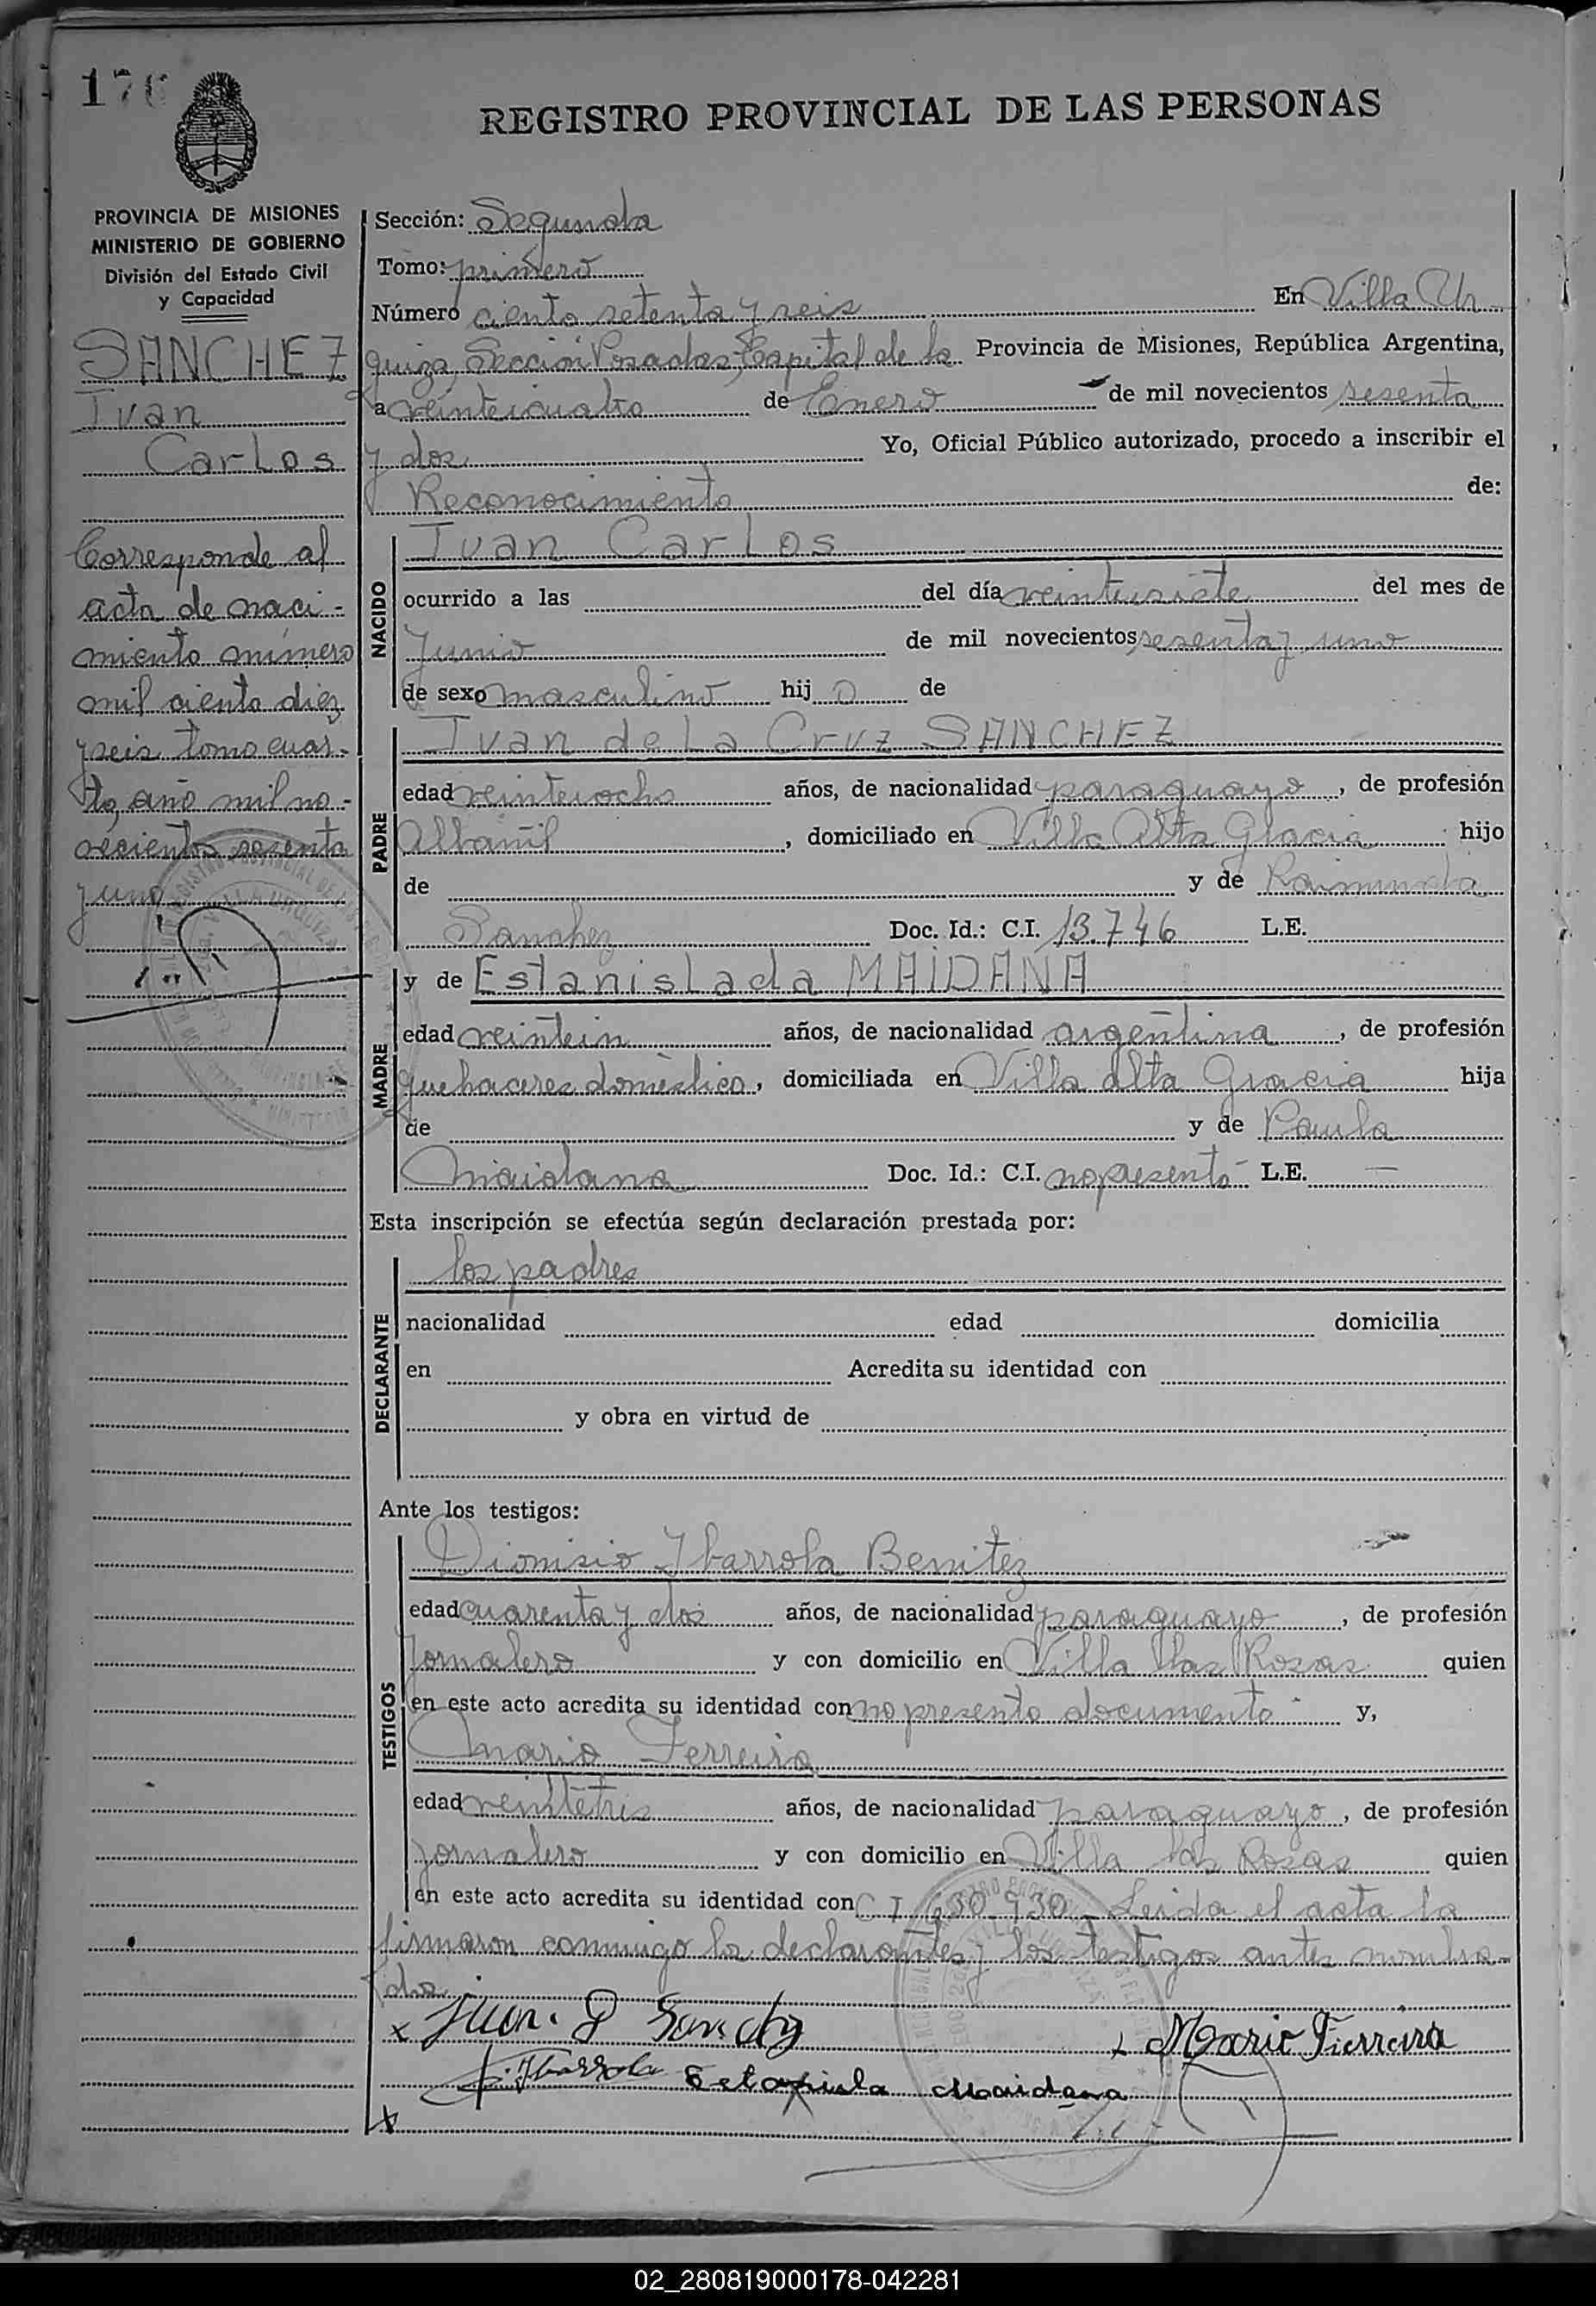 176
REGISTRO PROVINCIAL DE LAS PERSONAS
PROVINCIA DE MISIONES
MINISTERIO DE GOBIERNO
División del Estado Civil
y Capacidad
SANCHEZ
Juan
Carlos
Corresponde al
acta de naci-
miento número
mil ciento diez
y seis tomo cuar-
to, año mil no-
vecientos sesenta
y uno
Sección: Segunda
Tomo: primero
Número ciento setenta y seis En Villa Ur-
quiza, Sección Posadas, Capital de la Provincia de Misiones, República Argentina,
a veinticuatro de Enero de mil novecientos sesenta
y dos Yo, Oficial Público autorizado, procedo a inscribir el
Reconocimiento de:
NACIDO
Juan Carlos
ocurrido a las del día veintisiete del mes de
Junio de mil novecientos sesenta y uno
de sexo masculino hij o de
PADRE
Juan de la Cruz SANCHEZ
edad veintiocho años, de nacionalidad paraguayo, de profesión
Albañil, domiciliado en Villa Alta Gracia hijo
de y de Raimunda
Sanchez Doc. Id.: C.I. 13.746 L.E.
MADRE
y de Estanislada MAIDANA
edad años, de nacionalidad argentina, de profesión
quehaceres domestico, domiciliada en Villa Alta Gracia hija
de y de Paula
Maidana Doc. Id.: C.I. no presentó - L.E. —
Esta inscripción se efectúa según declaración prestada por:
DECLARANTE
los padres
nacionalidad edad domicilia
en Acredita su identidad con
y obra en virtud de
Ante los testigos:
TESTIGOS
Dionisio Ybarrola Benitez
edad cuarenta y dos años, de nacionalidad paraguayo, de profesión
Jornalero y con domicilio en Villa las Rosas quien
en este acto acredita su identidad con no presento documento y,
Mario Ferreira
edad veintetris años, de nacionalidad paraguayo, de profesión
jornalero y con domicilio en Villa las Rosas quien
en este acto acredita su identidad con C I 630.930 - Leida el acta la
firmaron conmigo los declarantes y los testigos antes nombra-
dos
x Juan. D Sanchz
x Mario Fierreira
Ybarrola Estanisla Maidana
x
02_280819000178-042281